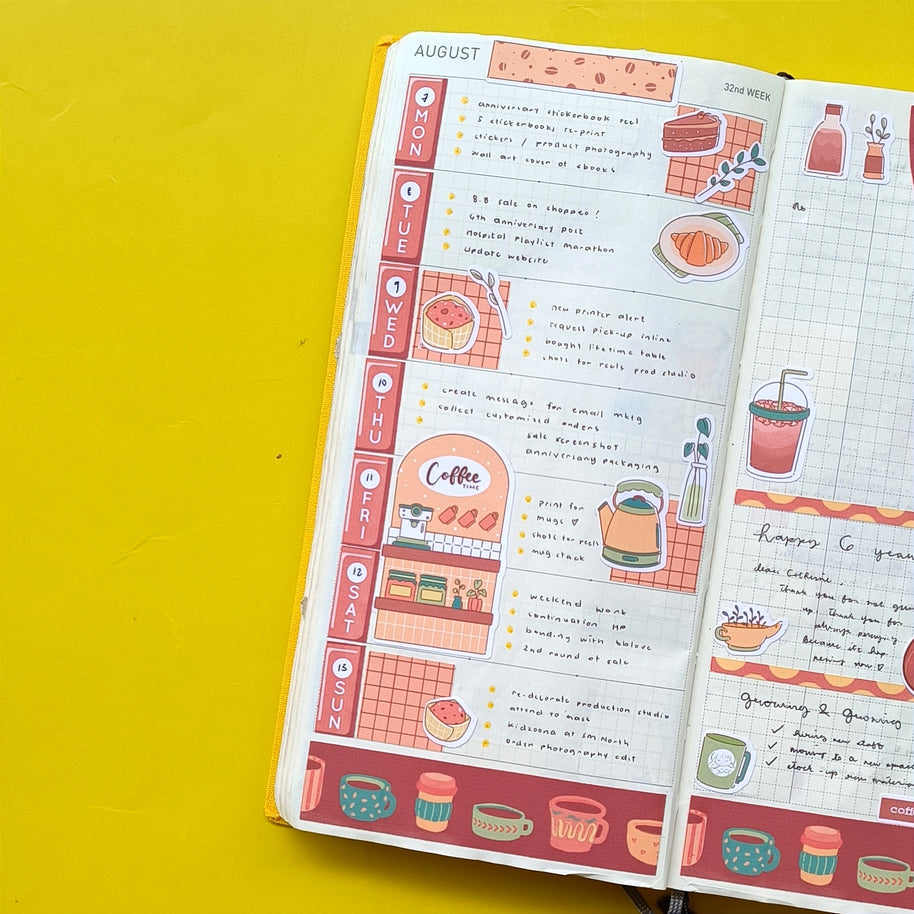 AUGUST
32nd WEEK
7 MON
anniversary stickerbook reel
5 stickerbooks re-print
stickers / product photography
wall art cover of ebooks
8 TUE
8.8 sale on shoppee!
6th anniversary post
Hospital Playlist marathon
update website
9 WED
new printer alert
request pick-up inline
bought lifetime table
shots for reels prod studio
10 THU
create message for email mktg
collect customized orders
sale screenshot
anniversary packaging
11 FRI
Coffee
TIME
print for
mugs
shots for reels
mug stack
12 SAT
weekend work
continuation
bonding with bblove
2nd round of sale
13 SUN
re-decorate production studio
attend to mass
kidzoona at SM North
order photography edit
happy 6 year
dear
thank you for not
up. Thank you for
always
Because it's
now
growing & growing
hiring new staff
moving to a new space
stock-up raw materia
coff